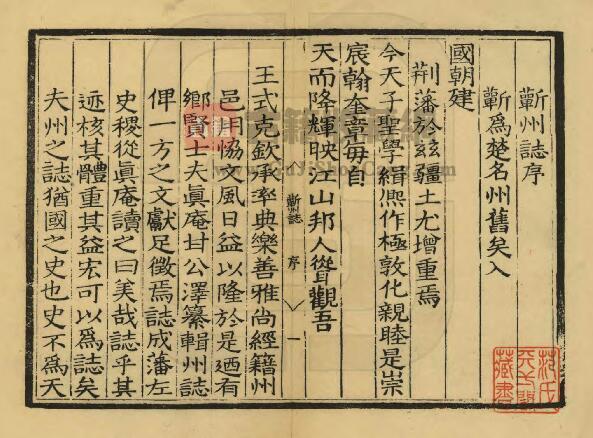 蘄州誌序
蘄爲楚名州舊矣入
國朝建
荆藩於兹疆土尤增重焉
今天子聖學緝熈作極敦化親睦是崇
宸翰奎章每自
天而降輝映江山邦人聳觀吾
蘄誌 序 一
王式克欽承率典樂善雅尚經籍州
邑用協文風日益以隆於是廼有
鄉賢士夫眞庵甘公澤纂輯州誌
俾一方之文獻足徵焉誌成藩左
史稷從眞庵讀之曰美哉誌乎其
迹核其體重其益宏可以爲誌矣
夫州之誌猶國之史也史不爲天
范氏天一閣藏書